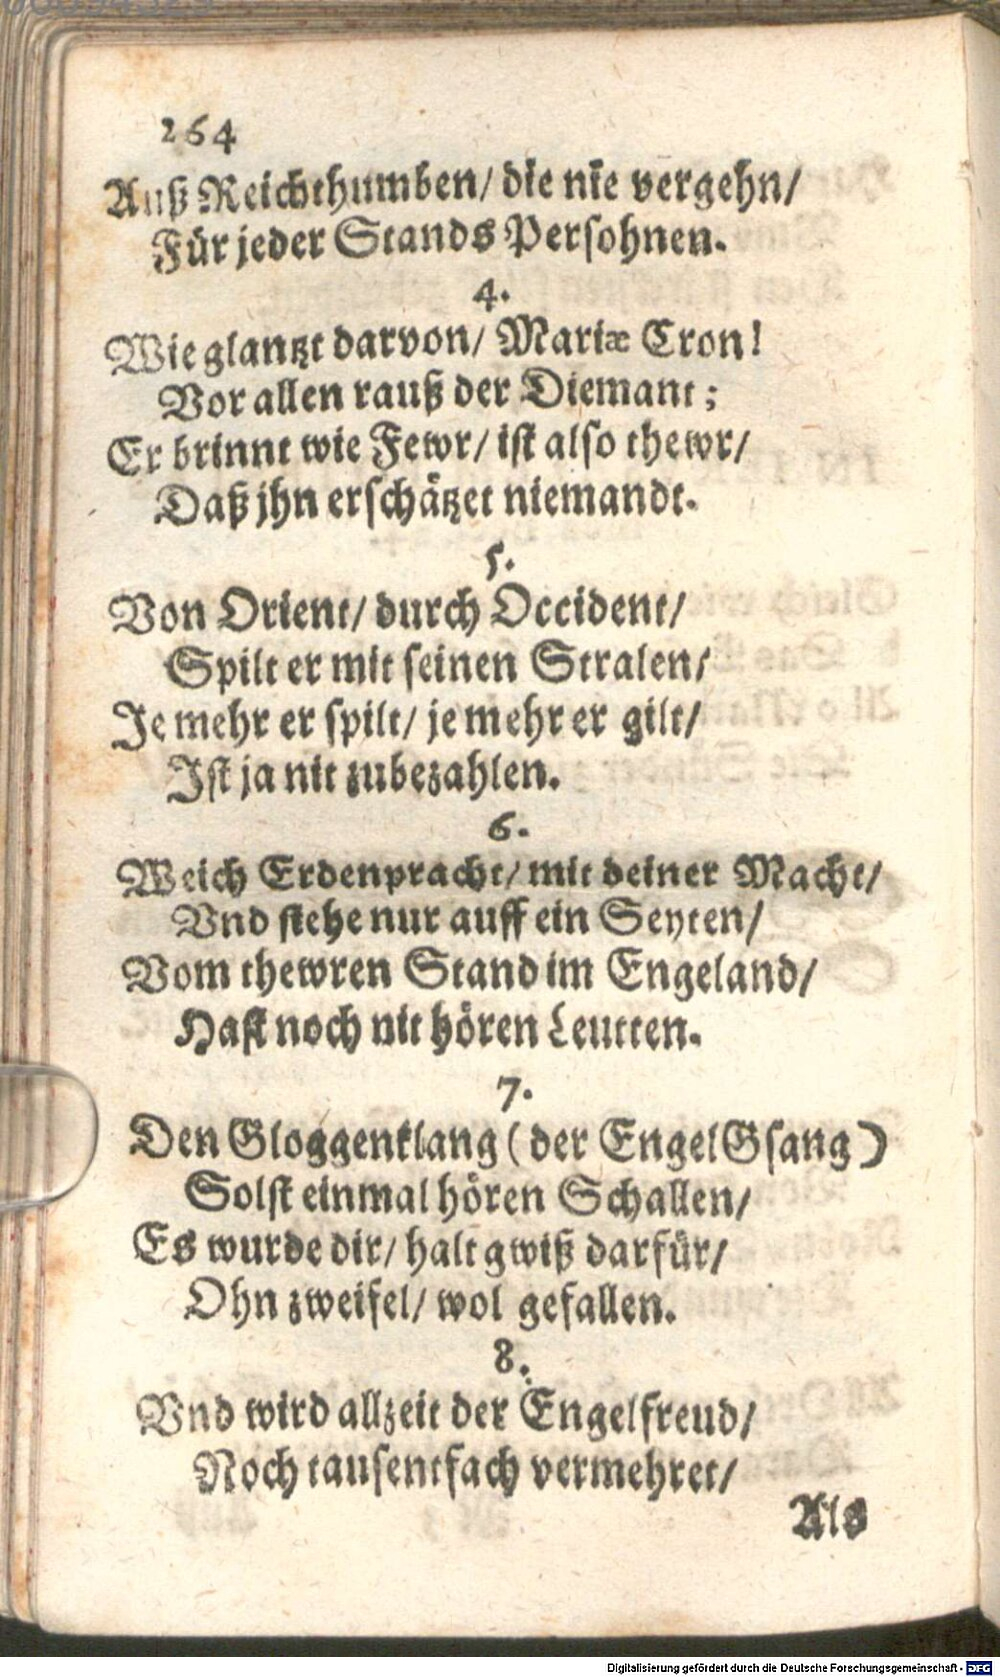 264
Auß Reichthumben/ die nie vergehn/
Für jeder Stands Persohnen.
4.
Wie glantzt darvon/ Mariæ Cron!
Vor allen rauß der Diemant;
Er brinnt wie Fewr/ ist also thewr/
Daß jhn erschätzet niemandt.
5.
Von Orient/ durch Occident/
Spilt er mit seinen Stralen/
Je mehr er spilt/ je mehr er gilt/
Ist ja nit zubezahlen.
6.
Weich Erdenpracht/ mit deiner Macht/
Vnd stehe nur auff ein Seyten/
Vom thewren Stand im Engeland/
Hast noch nit hören Leutten.
7.
Den Gloggenklang (der Engel Gsang)
Solst einmal hören Schallen/
Es wurde dir/ halt gwiß darfür/
Ohn zweifel/ wol gefallen.
8.
Vnd wird allzeit der Engelfreud/
Noch tausentfach vermehret/
Als
Digitalisierung gefördert durch die Deutsche Forschungsgemeinschaft - DFG